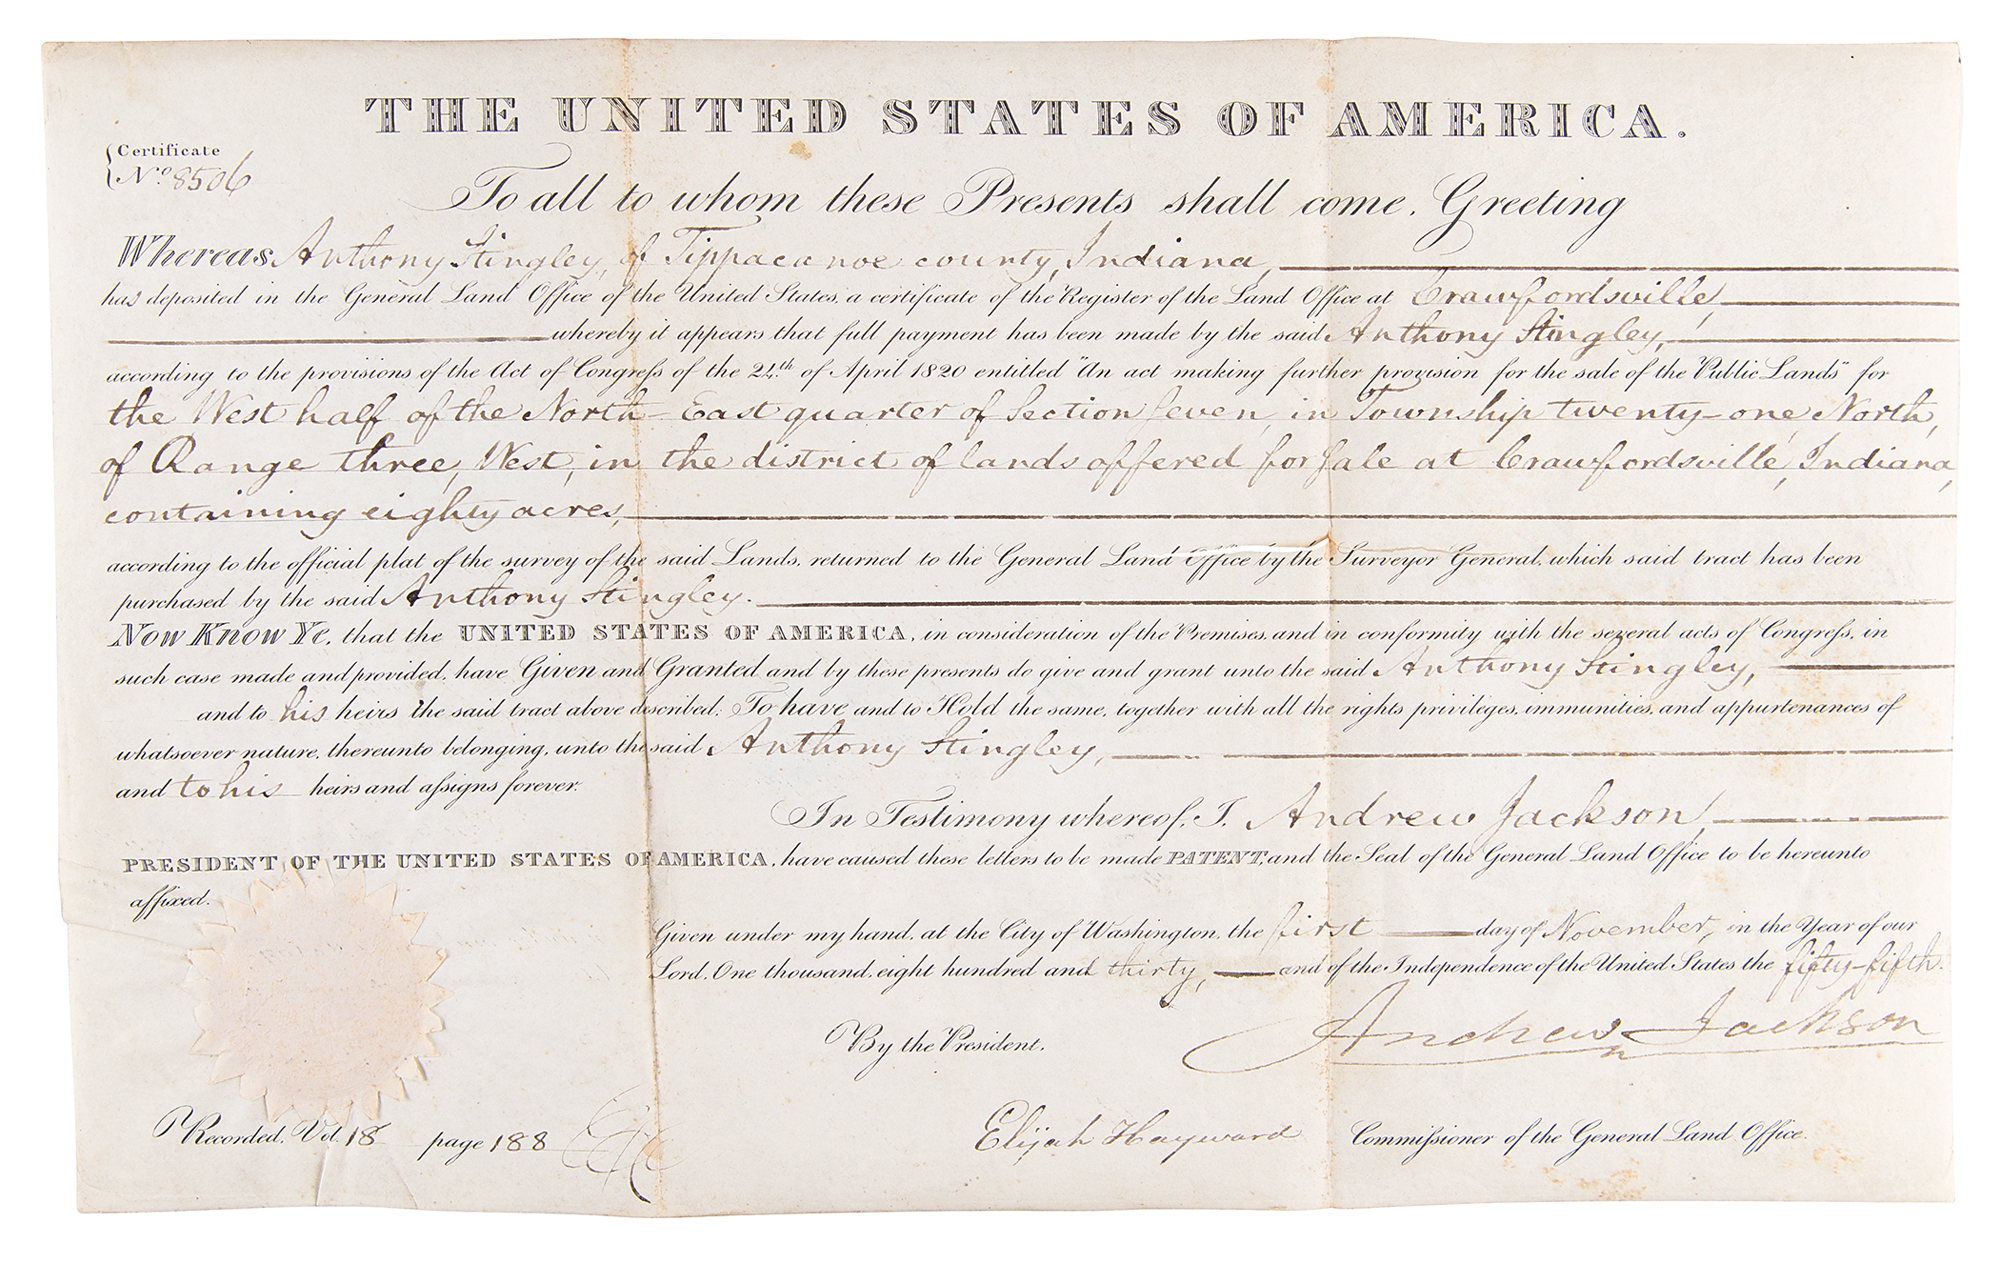 THE UNITED STATES OF AMERICA.
Certificate
No. 8506
To all to whom these Presents shall come, Greeting
Whereas Anthony Stingley, of Tippacanoe county, Indiana,
has deposited in the General Land Office of the United States, a certificate of the Register of the Land Office at Crawfordsville,
whereby it appears that full payment has been made by the said Anthony Stingley,
according to the provisions of the Act of Congreſs of the 24th of April 1820 entitled "An act making further provision for the sale of the Public Lands" for
the West half of the North-East quarter of Section Seven, in Township twenty-one, North,
of Range three, West, in the district of lands offered for Sale at Crawfordsville, Indiana,
containing eighty acres,
according to the official plat of the survey of the said Lands, returned to the General Land Office by the Surveyor General, which said tract has been
purchased by the said Anthony Stingley.
Now Know Ye, that the UNITED STATES OF AMERICA, in consideration of the Premises, and in conformity with the several acts of Congreſs, in
such case made and provided, have Given and Granted and by these presents do give and grant unto the said Anthony Stingley,
and to his heirs the said tract above described; To have and to Hold the same, together with all the rights privileges, immunities, and appurtenances of
whatsoever nature, thereunto belonging, unto the said Anthony Stingley,
and to his heirs and aſsigns forever.
In Testimony whereof, I, Andrew Jackson,
PRESIDENT OF THE UNITED STATES OF AMERICA, have caused these letters to be made PATENT, and the Seal of the General Land Office to be hereunto
affixed.
Given under my hand, at the City of Washington, the first day of November, in the Year of our
Lord, One thousand, eight hundred and thirty, and of the Independence of the United States the fifty-fifth.
Andrew Jackson
By the President.
Elijah Hayward Commiſsioner of the General Land Office.
Recorded, Vol. 18 page 188